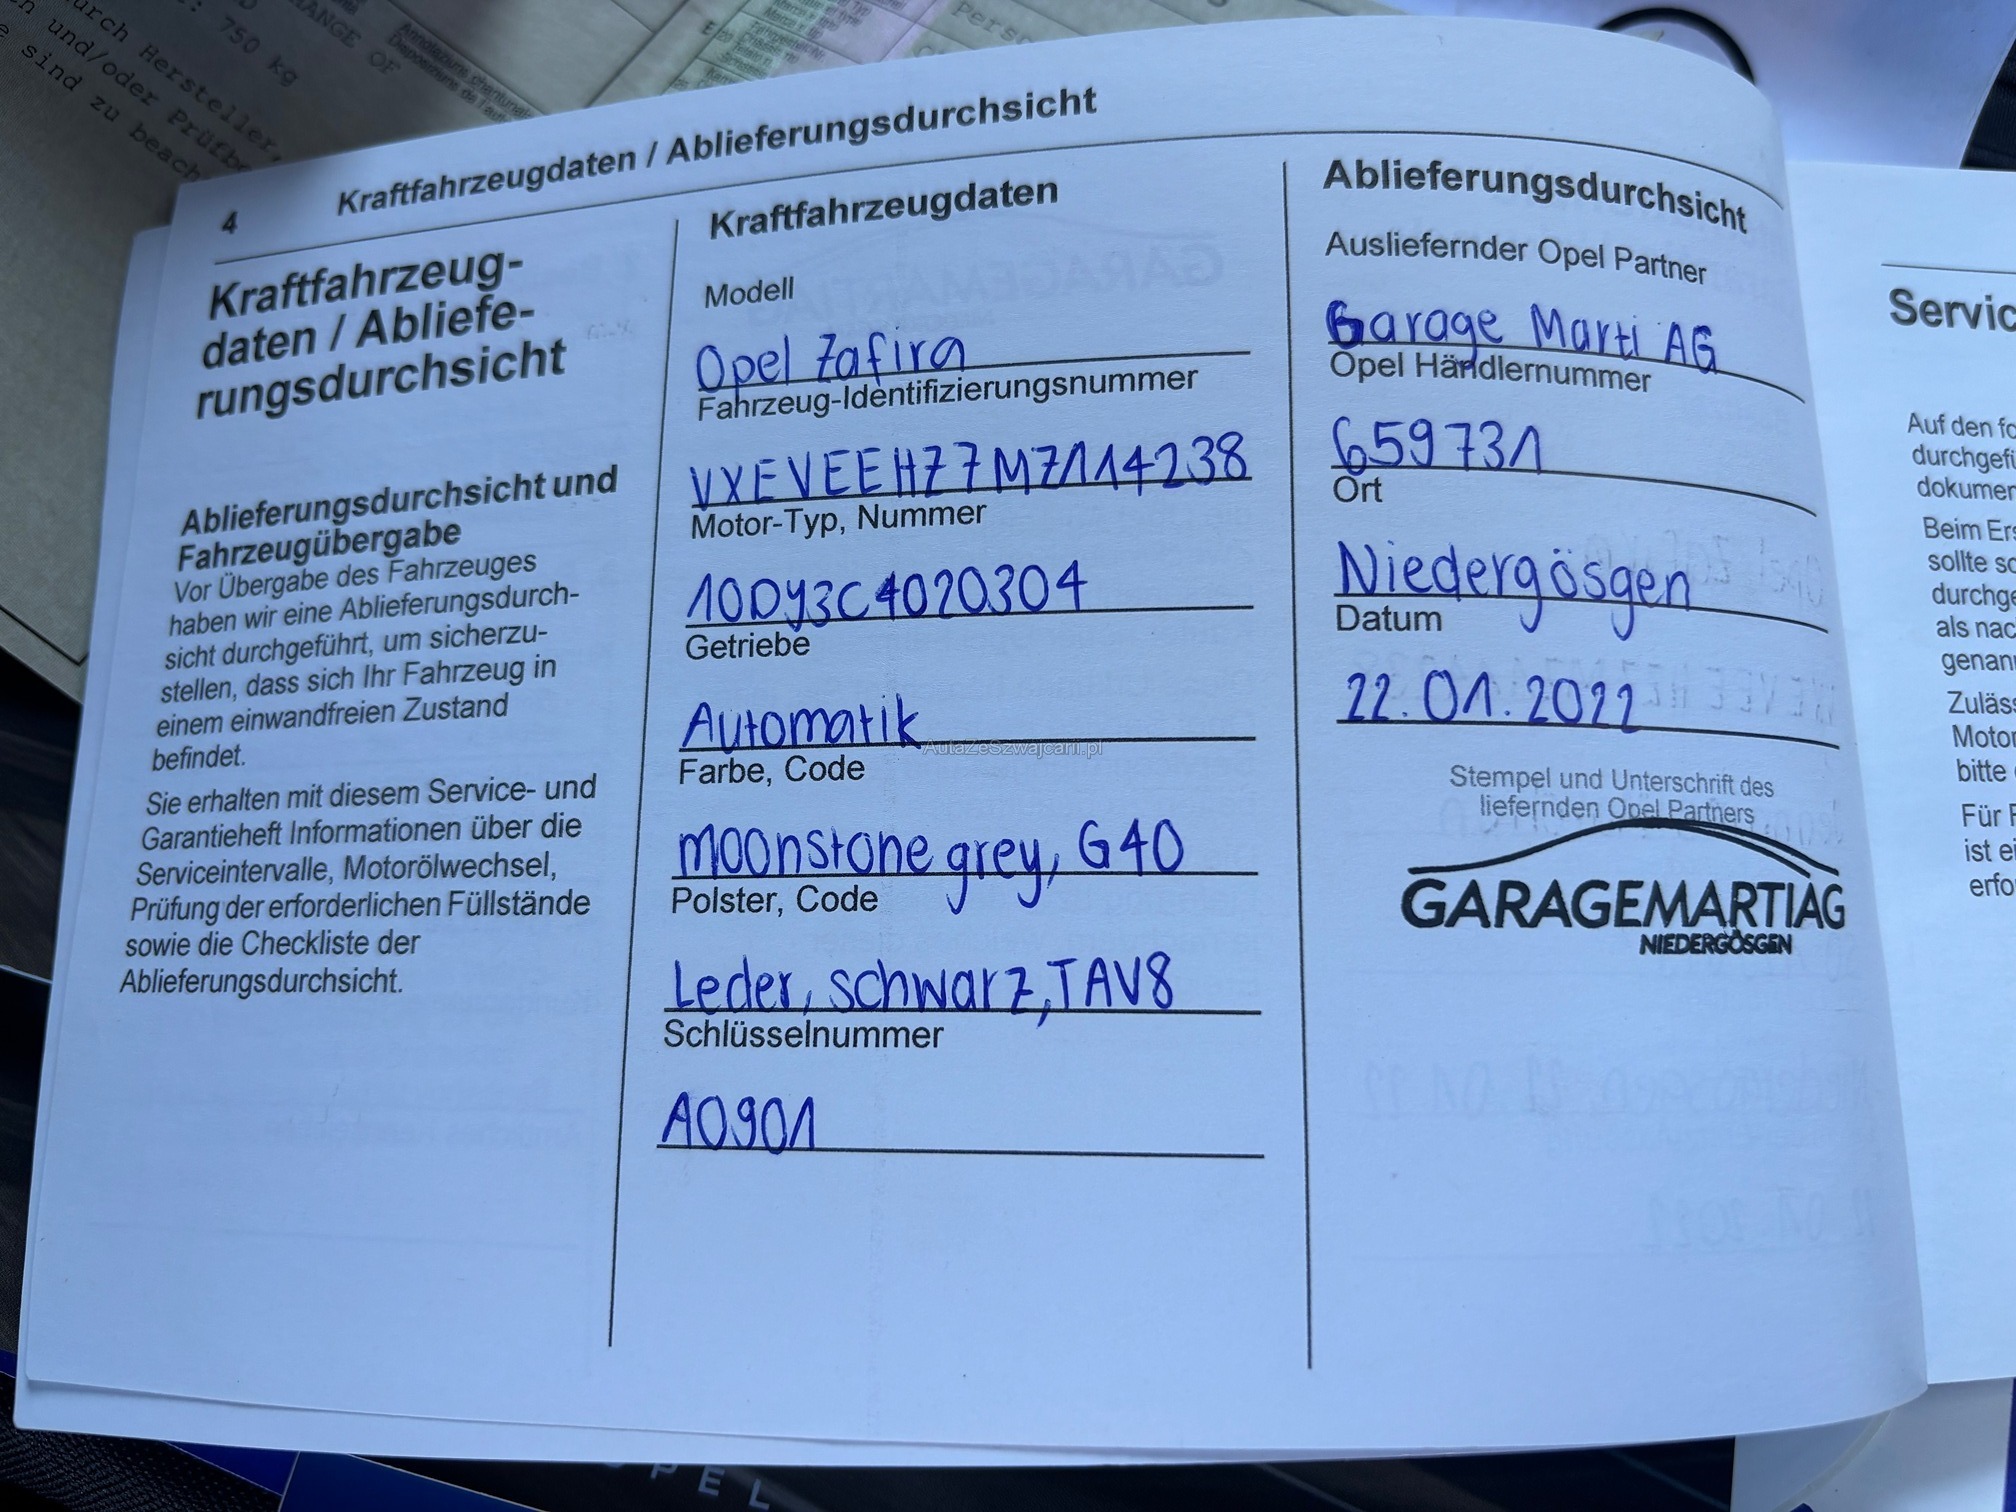 urch Hersteller,
und/oder Prüfbe
sind zu beach
: 750 kg
HANGE OF
4
Kraftfahrzeugdaten / Ablieferungsdurchsicht
Kraftfahrzeug-
daten / Abliefe-
rungsdurchsicht
Ablieferungsdurchsicht und
Fahrzeugübergabe
Vor Übergabe des Fahrzeuges
haben wir eine Ablieferungsdurch-
sicht durchgeführt, um sicherzu-
stellen, dass sich Ihr Fahrzeug in
einem einwandfreien Zustand
befindet.
Sie erhalten mit diesem Service- und
Garantieheft Informationen über die
Serviceintervalle, Motorölwechsel,
Prüfung der erforderlichen Füllstände
sowie die Checkliste der
Ablieferungsdurchsicht.
Kraftfahrzeugdaten
Modell
Opel Zafira
Fahrzeug-Identifizierungsnummer
VXEVEEHZ7MZ114238
Motor-Typ, Nummer
10DY3C4020304
Getriebe
Automatik
Farbe, Code
moonstone grey, G40
Polster, Code
Leder, schwarz, TAV8
Schlüsselnummer
A0901
Ablieferungsdurchsicht
Ausliefernder Opel Partner
Garage Marti AG
Opel Händlernummer
659731
Ort
Niedergösgen
Datum
22.01.2022
Stempel und Unterschrift des
liefernden Opel Partners
GARAGEMARTIAG
NIEDERGÖSGEN
AutaZeSzwajcarii.pl
Servic
Auf den fo
durchgefü
dokumen
Beim Ers
sollte so
durchge
als nac
genann
Zuläss
Motor
bitte
Für F
ist ei
erfo
OPEL